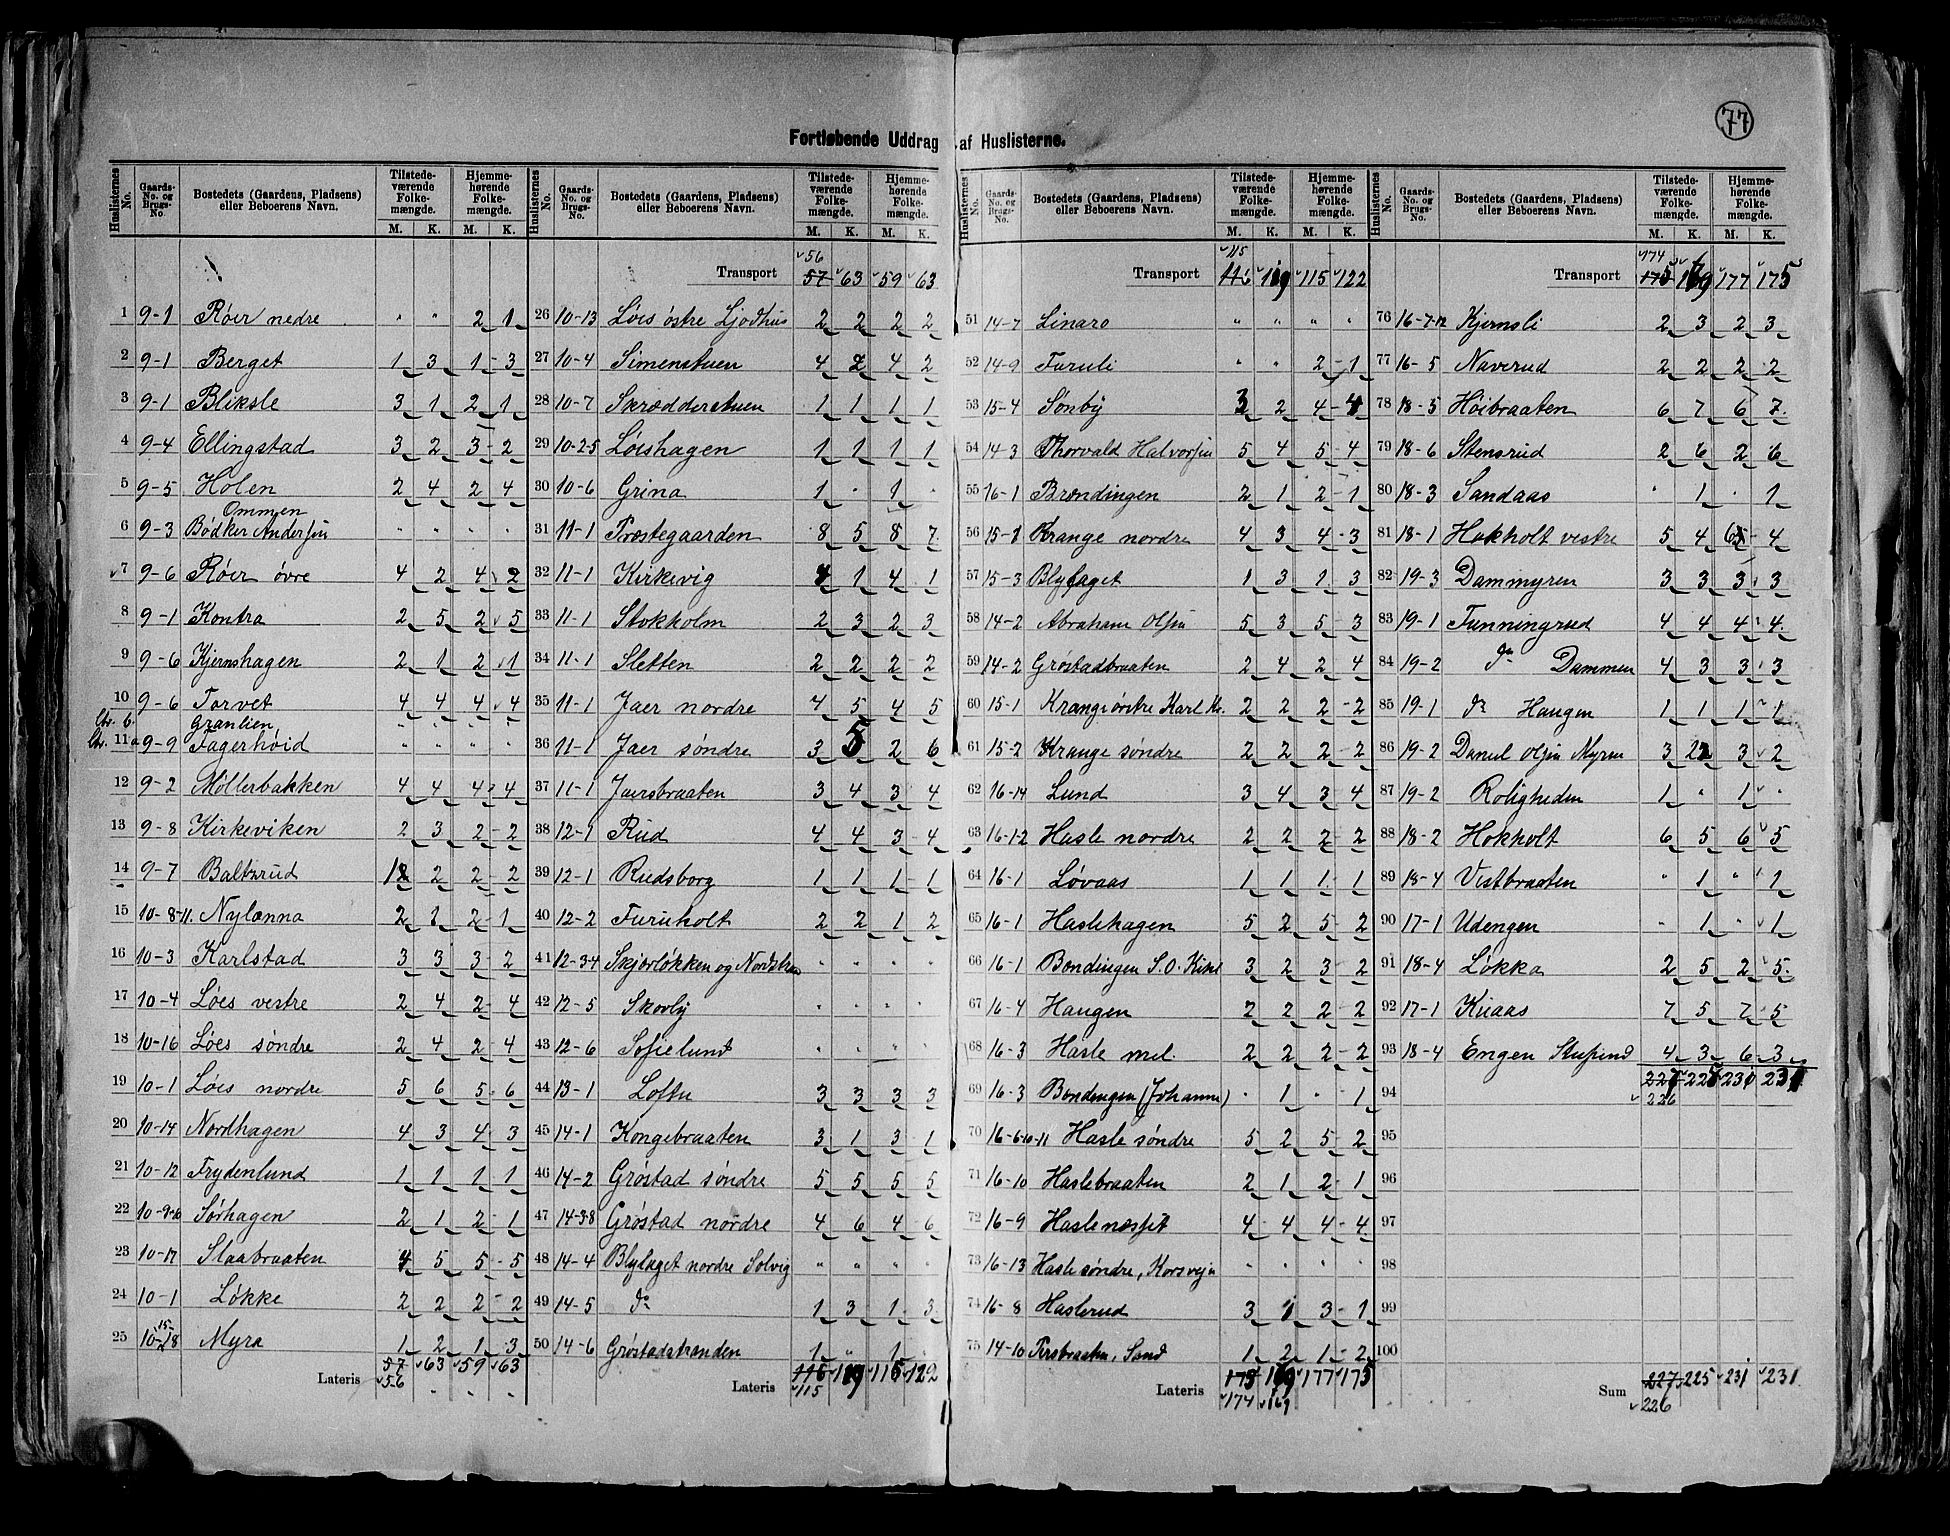 77
Fortløbende Uddrag af Huslisterne.
Huslisternes No. Gaards-No. og Brugs-No. Bostedets (Gaardens, Pladsens) eller Beboerens Navn. Tilstedeværende Folkemængde. M. K. Hjemmehørende Folkemængde. M. K.
1 9-1 Røer nedre " " 2 1
2 9-1 Berget 1 3 1 3
3 9-1 Bliksle 3 1 2 1
4 9-4 Ellingstad 3 2 3 2
5 9-5 Holen 2 4 2 4
Ommen
6 9-3 Bødker Andersen " " " "
7 9-6 Røer øvre 4 2 4 2
8 9-1 Kontra 2 5 2 5
9 9-6 Kjernshagen 2 1 2 1
10 9-6 Torvet 4 4 4 4
Ltr. b. Granlien " " " "
Ltr. 11 a 9-9 Fagerhøid " " " "
12 9-2 Møllerbakken 4 4 4 4
13 9-8 Kirkeviken 2 3 2 2
14 9-7 Baltzrud 2 2 2
15 10-8-11. Nylænna 2 1 2 1
16 10-3 Karlstad 3 3 3 2
17 10-4 Løes vestre 2 4 2 4
18 10-16 Løes søndre 2 4 2 4
19 10-1 Løes nordre 5 6 5 6
20 10-14 Nordhagen 4 3 4 3
21 10-12 Frydenlund 1 1 1 1
22 10-9- Sørhagen 2 1 2 1
23 10-17 Slaabraaten 4 5 5 5
24 10-1 Løkke 2 2 2 2
15
25 10-18 Myra 1 2 1 3
Lateris 57 63 59 63
56
Huslisternes No. Gaards-No. og Brugs-No. Bostedets (Gaardens, Pladsens) eller Beboerens Navn. Tilstedeværende Folkemængde. M. K. Hjemmehørende Folkemængde. M. K.
56
Transport 57 63 59 63
26 10-13 Løes østre Ljodhus 2 2 2 2
27 10-4 Simenstuen 4 2 4 2
28 10-7 Skrædderstuen 1 1 1 1
29 10-2-5 Løishagen 1 1 1 1
30 10-6 Grina 1 " 1 "
31 11-1 Præstegaarden 8 5 8 7
32 11-1 Kirkevig 4 1 4 1
33 11-1 Stokholm 2 3 2 3
34 11-1 Sletten 2 2 2 2
35 11-1 Jaer nordre 4 5 4 5
36 11-1 Jaer søndre 3 5 2 6
37 11-1 Jaersbraaten 3 4 3 4
38 12-1 Rud 4 4 3 4
39 12-1 Rudsborg 1 1 1 1
40 12-2 Furuholt 2 2 1 2
41 12-3-4 Skjørløkken og Nordstran " " " "
42 12-5 Skovly " " " "
43 12-6 Sofielund " " " "
44 13-1 Loftu 3 3 3 3
45 14-1 Kongebraaten 3 1 3 1
46 14-2 Grøstad søndre 5 5 5 5
47 14-3-8 Grøstad nordre 4 6 4 6
48 14-4 Blylaget nordre Solvig " " " "
49 14-5 do 1 3 1 3
50 14-6 Grøstadstranden 1 " 1 "
Lateris 116 119 115 122
115
Huslisternes No. Gaards-No. og Brugs-No. Bostedets (Gaardens, Pladsens) eller Beboerens Navn. Tilstedeværende Folkemængde. M. K. Hjemmehørende Folkemængde. M. K.
115
Transport 116 119 115 122
51 14-7 Linaro " " " "
52 14-9 Furuli " " 2 1
53 15-4 Sønby 3 2 4 4
54 14-3 Thorvald Halvorsen 5 4 5 4
55 16-1 Brændingen 2 1 2 1
56 15-1 Krange nordre 4 3 4 3
57 15-3 Blylaget 1 3 1 3
58 14-2 Abraham Olsen 5 3 5 3
59 14-2 Grøstadbraaten 2 4 2 4
60 15-1 Krange østre Karl Kr. 2 2 2 2
61 15-2 Krange søndre 2 2 2 2
62 16-14 Lund 3 4 3 4
63 16-1-2 Hasle nordre 2 2 2 2
64 16-1 Løvaas 1 1 1 1
65 16-1 Haslehagen 5 2 5 2
66 16-1 Bondingen S. O. 3 2 3 2
67 16-4 Haugen 2 2 2 2
68 16-3 Hasle mel. 2 2 2 2
69 16-3 Bondingen (Johanne) " 1 " 1
70 16-6-10-11 Hasle søndre 5 2 5 2
71 16-10 Haslebraaten 2 1 2 1
72 16-9 Haslenæsset 4 4 4 4
73 16-13 Hasle søndre, Korsvejn " " " "
74 16-8 Haslerud 3 1 3 1
75 14-10 Persbraaten, Sand 1 2 1 2
Lateris 175 169 177 175
174 169
Huslisternes No. Gaards-No. og Brugs-No. Bostedets (Gaardens, Pladsens) eller Beboerens Navn. Tilstedeværende Folkemængde. M. K. Hjemmehørende Folkemængde. M. K.
174
Transport 175 169 177 175
76 16-7-12 Kjernsli 2 3 2 3
77 16-5 Naverud 2 2 2 2
78 18-5 Høibraaten 6 7 6 7
79 18-6 Stensrud 2 6 2 6
80 18-3 Sandaas " 1 " 1
81 18-1 Hokholt vestre 5 4 6 4
82 19-3 Dammyren 3 3 3 3
83 19-1 Tunningrud 4 4 4 4
84 19-2 do Dammen 4 3 3 3
85 19-1 do Haugen 1 1 1 1
86 19-2 Daniel Olsen Myren 3 2 3 2
87 19-2 Roligheden 1 " 1 "
88 18-2 Hokholt 6 5 6 5
89 18-4 Vestbraaten " 1 " 1
90 17-1 Udengen " 1 " 1
91 18-4 Løkka 2 5 2 5
92 17-1 Knaas 7 5 7 5
93 18-4 Engen Stupend 4 3 6 3
227 225 231 231
94 226
95
96
97
98
99
100
Sum 227 225 231 231
226